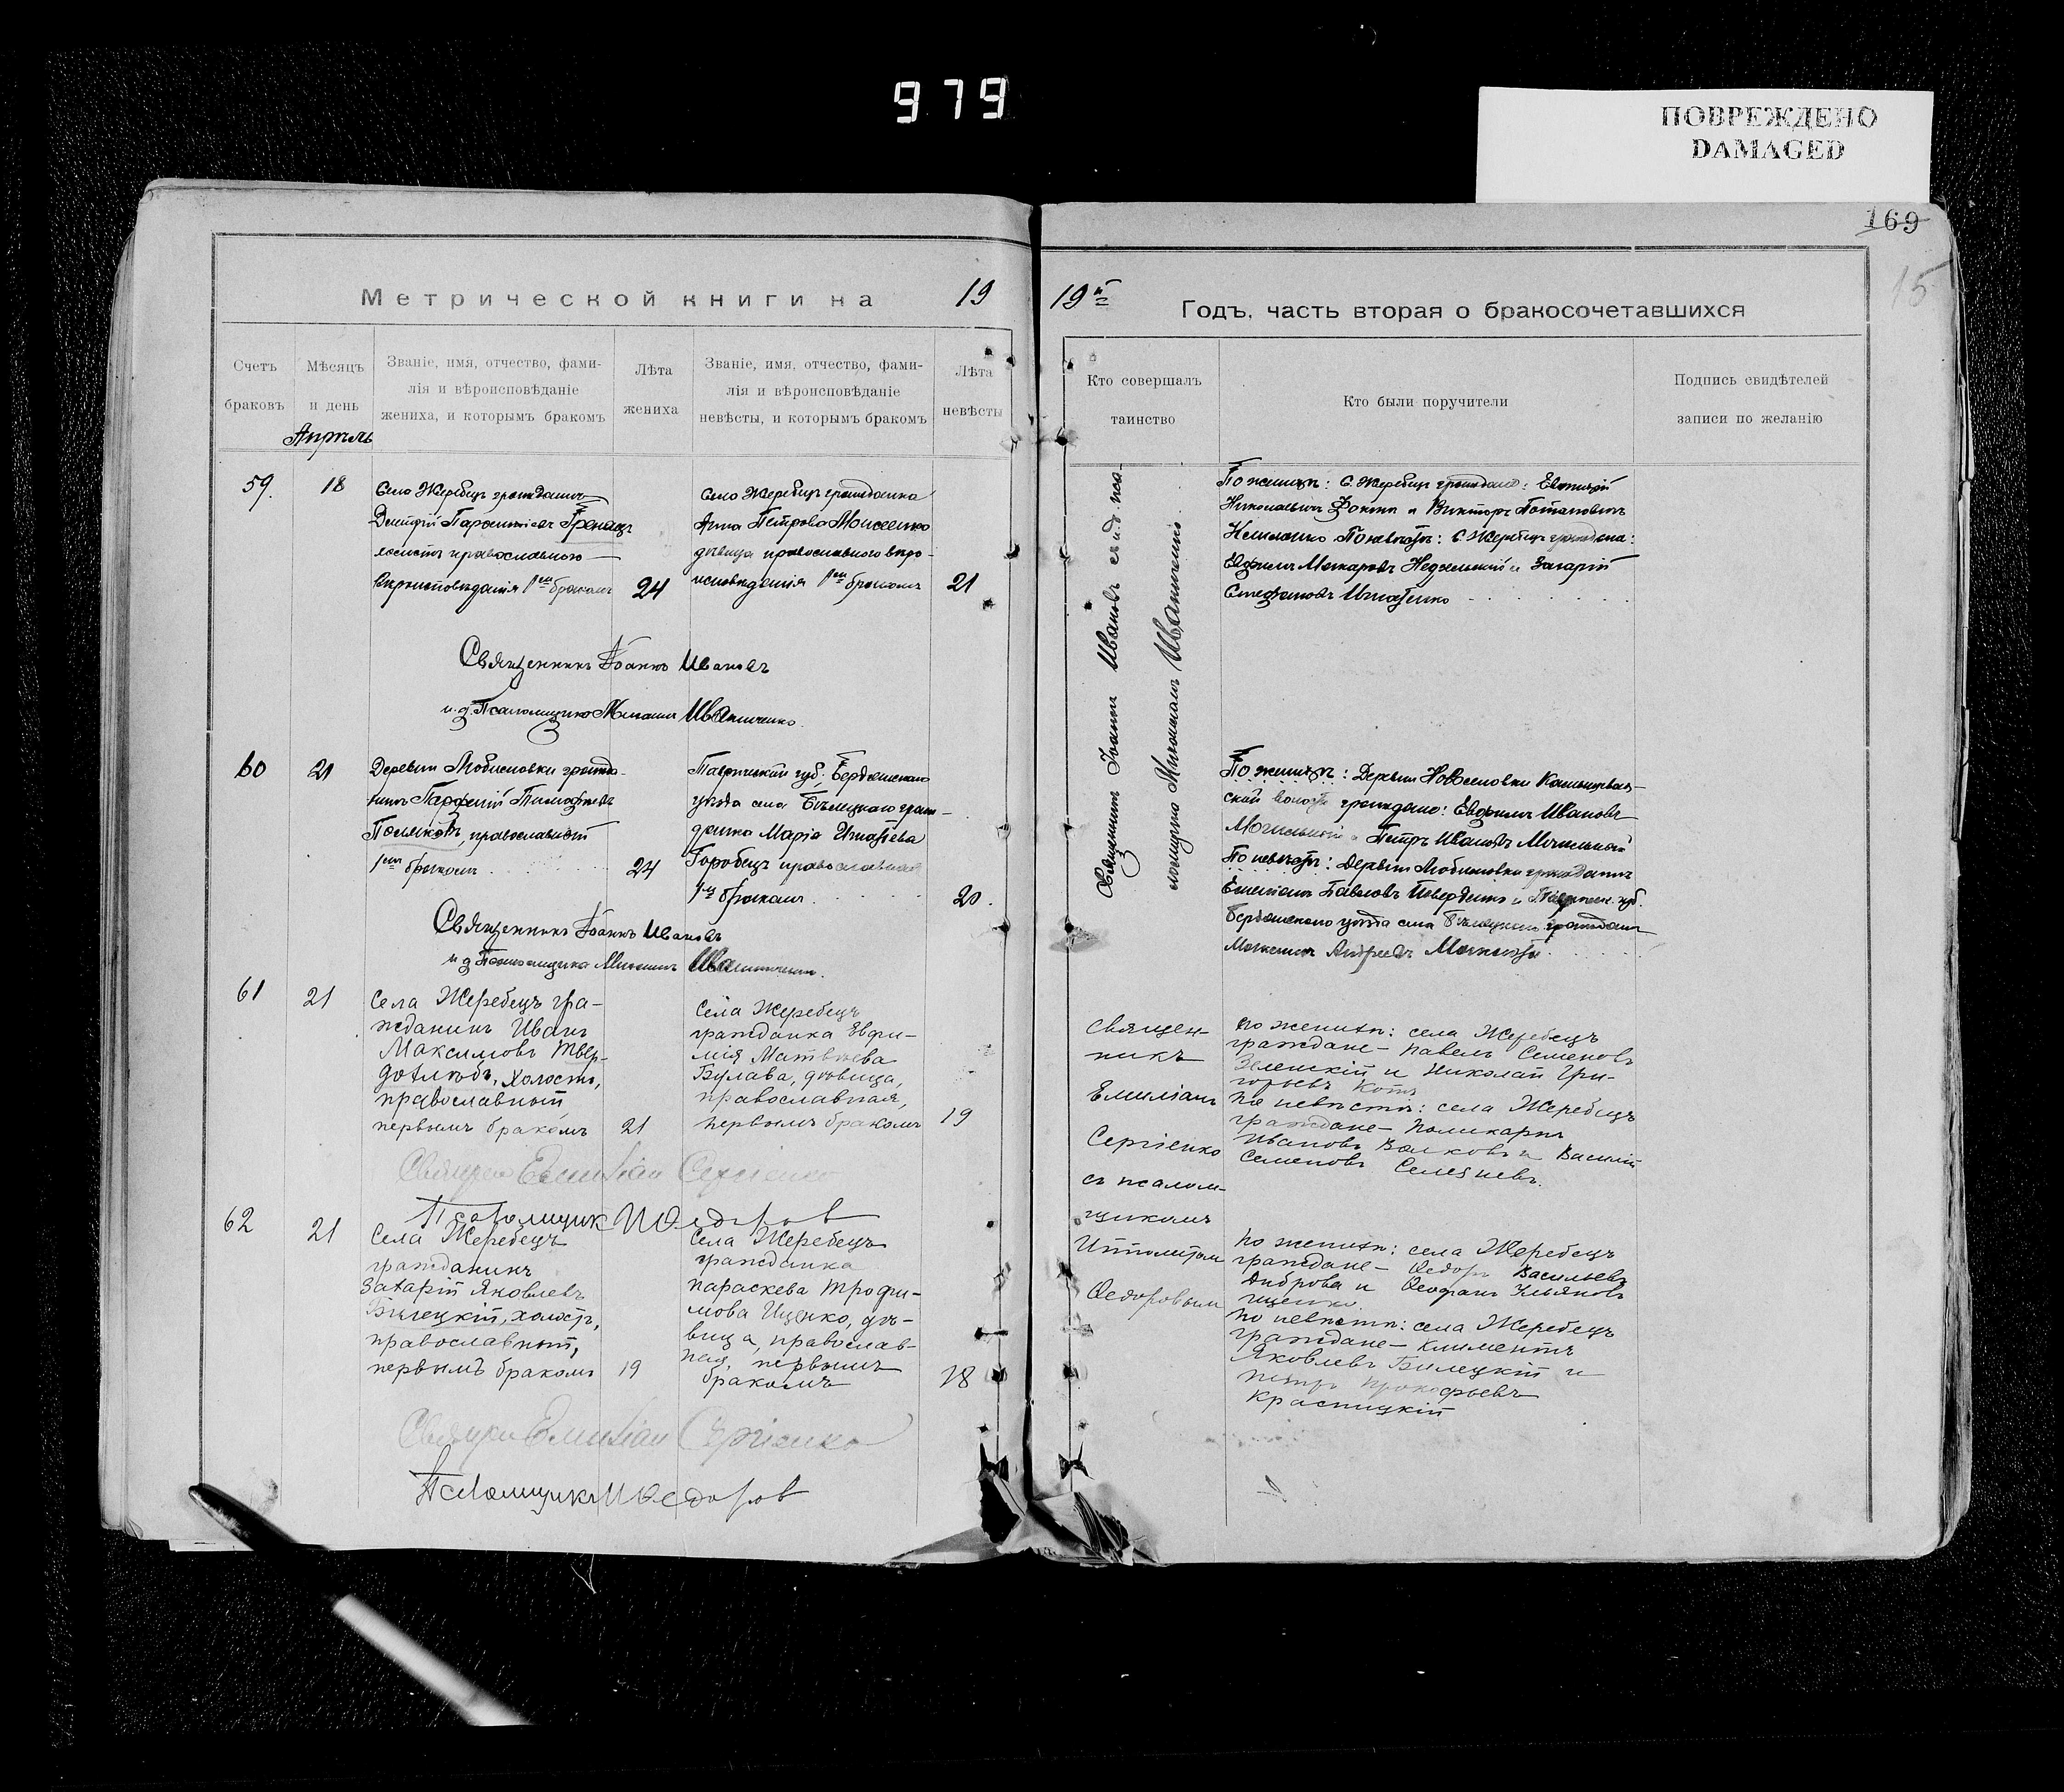 979
ПОВРЕЖДЕНО
DAMAGED
169
15
Метрической книги на 19
19й Годъ, часть вторая о бракосочетавшихся
Счетъ браковъ
Мѣсяцъ и день
Званіе, имя, отчество, фами-
лія и вѣроисповѣданіе
жениха, и которымъ бракомъ
Лѣта
жениха
Званіе, имя, отчество, фами-
лія и вѣроисповѣданіе
невѣсты, и которымъ бракомъ
Лѣта
невѣсты
Кто совершалъ
таинство
Кто были поручители
Подпись свидѣтелей
записи по желанію
Апрѣль
59.
18
Село Жеребецъ гражданинъ
православнаго
Вѣроисповѣданія 1мъ бракомъ
24
Село Жеребецъ гражданка
Анна Петрова Моисеенко
дѣвица православного вѣро-
исповѣданія 1мъ бракомъ
21
Священникъ Іоаннъ Ивановъ съ и.д. пса-
ломщика Михаиломъ Иваниченко
По женихѣ: С. Жеребецъ граждане: Евгений
Николаевъ Фокинъ и Викторъ Потаповичъ
По невѣстѣ: С. Жеребецъ граждане:
Евфимъ Макаровъ и Захарій
Стефановъ Игнатенко
Священникъ Іоаннъ Ивановъ
и. д. Псаломщика Михаилъ Иваниченко
60
21
Деревни Любимовки гражда-
нинъ Парфеній Тимофѣевъ
Поляковъ, православный
1мъ бракомъ
24
Таврической губ. Бердянского
уѣзда села Бѣлецкаго граж-
данка Марія Игнатьева
Горобецъ православная
1мъ бракомъ
20.
По женихѣ: Деревни Новоселовки
ской волости граждане: Евфимъ Ивановъ
Могильный и Петръ Ивановъ Могильный
По невѣстѣ: Деревни Любимовки гражданинъ
Емельянъ Павловъ и Таврической губ.
Бердянского уѣзда села Бѣлецкого гражданинъ
Андреевъ
Священникъ Іоаннъ Ивановъ
и д Псаломщика Михаилъ Иваниченко.
61
21
Села Жеребецъ гра-
жданинъ Иванъ
Максимовъ Твер-
дохлѣбъ, холостъ,
православный,
первымъ бракомъ
21
Села Жеребецъ
гражданка Евфи-
мія Матвѣева
Булава, дѣвица,
православная,
первымъ бракомъ
19
Священ-
никъ
Емиліанъ
Сергіенко
съ псалом-
щикомъ
Ипполитом
Федоровым
По женихѣ: села Жеребецъ
граждане – Павелъ Семеновъ
Зеленскій и Николай Гри-
горьевъ Котъ
По невѣстѣ: села Жеребецъ
граждане – Поликарпъ
Ивановъ Волковъ и Василій
Семеновъ Селезневъ.
Священ Емилian Сергіенко
Псаломщик И Федоров
62
21
Села Жеребецъ
гражданинъ
Захарій Яковлевъ
Билецкій, холостъ,
православный,
первымъ бракомъ
19
Села Жеребецъ
гражданка
Параскева Трофи-
мова Ищенко, дѣ-
вица, православ-
ная, первымъ
бракомъ
18
По женихѣ: села Жеребецъ
граждане – Федоръ Васильевъ
Диброва и Феофанъ Ульяновъ
Ищенко.
По невѣстѣ: села Жеребецъ
граждане – Климентъ
Яковлевъ Билецкій и
Петръ Прокофьевъ
Красницкій
Священ Емилian Сергіенко
Псаломщикъ И Федоров